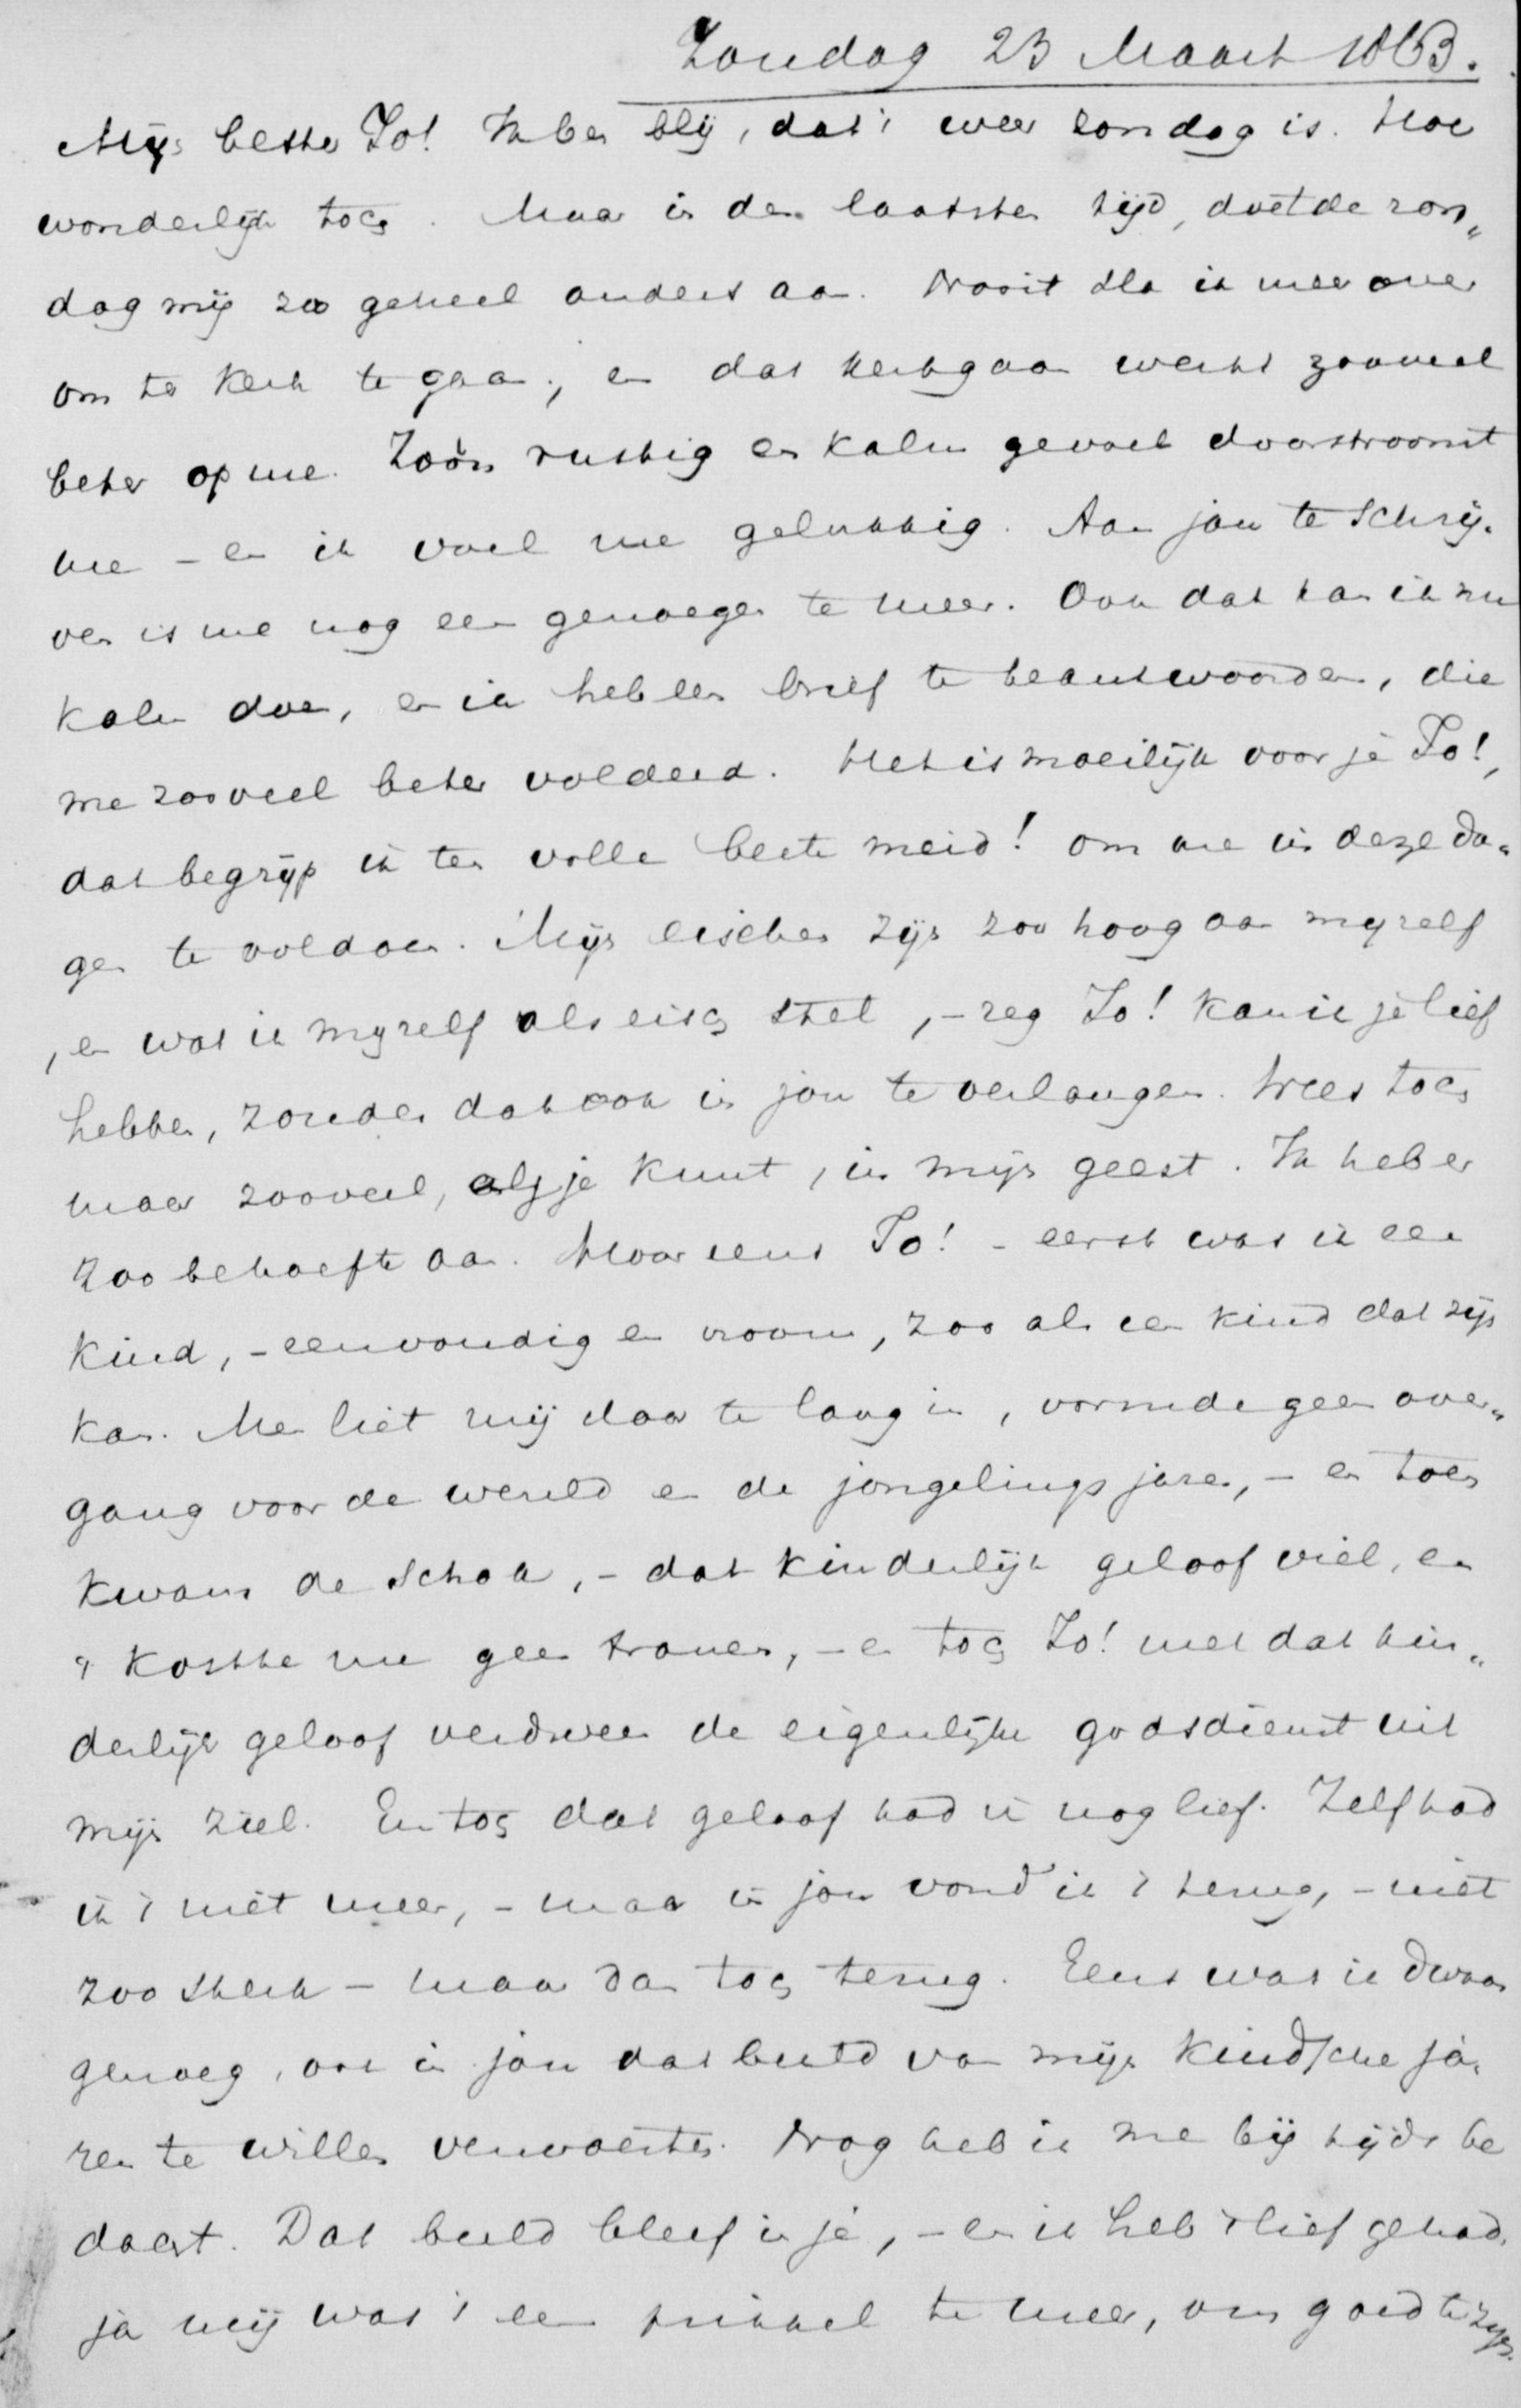 Zondag 23 Maart 1863.
Mijn beste Jo! Ik ben blij, dat 't weer zondag is. Hoe
wonderlijk toch. Maar in den laatsten tijd, doet de zon„
dag mij zoo geheel anders aan. Nooit sla ik meer over
om te kerk te gaan; en dat kerkgaan werkt zooveel
beter op me. Zóó'n rustig en kalm gevoel doorstroomt
me – en ik voel me gelukkig. Aan jou te schrij„
ven is me nog een genoegen te meer. Ook dat kan ik nu
kalm doen, en ik heb een brief te beantwoorden, die
me zooveel beter voldeed. Het is moeilijk voor je Jo!,
dat begrijp ik ten volle beste meid! om me in deze da„
gen te voldoen. Mijn eischen zijn zoo hoog aan mijzelf
, en wat ik mijzelf als eisch stel, – zeg Jo! kan ik je lief
hebben, zonder dat ook in jou te verlangen. Wees toch
maar zooveel, als je kunt, in mijn geest. Ik heb er
zoo behoefte aan. Hoor eens Jo! – eerst was ik een
kind, – eenvoudig en vroom, zoo als een kind dat zijn
kan. Men liet mij daar te lang in, vormde geen over„
gang voor de wereld en de jongelingsjaren, – en toen
kwam de schok, – dat kinderlijk geloof viel, en
't kostte me geen tranen, – en toch Jo! met dat kin„
derlijk geloof verdween de eigenlijke godsdienst uit
mijn ziel. En toch dat geloof had ik nog lief. Zelf had
ik 't niet meer, – maar in jou vond ik 't terug, – niet
zoo sterk – maar dan toch terug. Eens was ik dwaas
genoeg, ook in jou dat beeld van mijn kindsche ja„
ren te willen verwoesten. Nog heb ik me bij tijds be
dacht. Dat beeld bleef in je, – en ik heb 't lief gehad,
ja mij was 't een prikkel te meer, om goed te zijn.